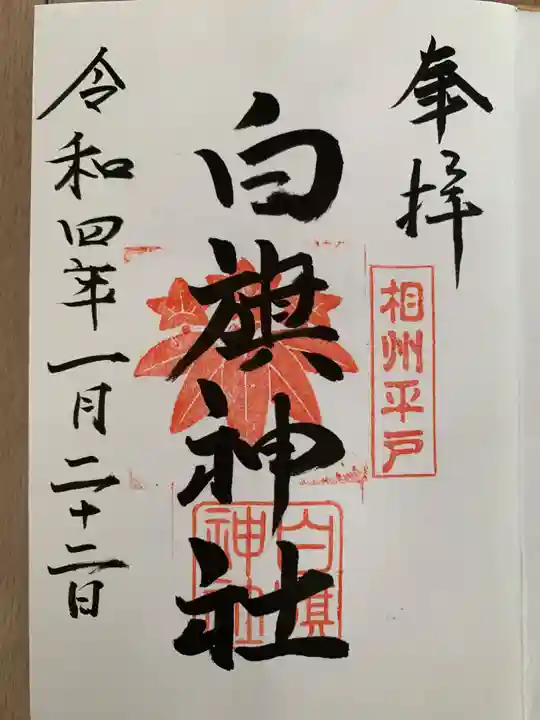 奉拝
相州平戸
白旗神社
白旗
神社
令和四年一月二十二日